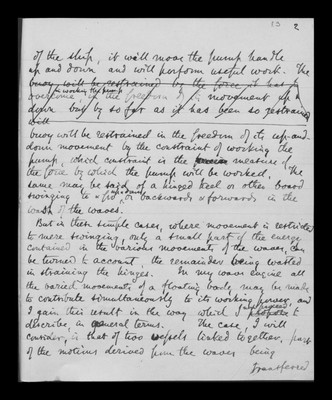 13 2
of the ship, it will move the pump handle
up and down and will perform useful work. The
buoy will be restrained by the force it has to
overcome in working the pump in the freedom of its movement up &
down but by so far as it has been so restrained
will
buoy will be restrained in the freedom of its up-and-
down movement by the constraint of working the
pump, which constraint is the measure of
the force by which the pump will be worked. The
same may be said of a hinged keel or other board
swinging to & fro, or backwards & forwards in the
wash of the waves.
But in these single cases, where movement is restricted
to mere swinging, only a small part of the energy
contained in the various movements of the waves can
be turned to account, the remainder being wasted
in straining the hinges. In my wave engine all
the varied movements of a floating body may be made
to contribute simultaneously to its working power, and
I gain this result in the way which I propose to
describe, in general terms. The case, I will
consider, is that of two vessels linked together, part
of the motions derived from the waves being
transferred